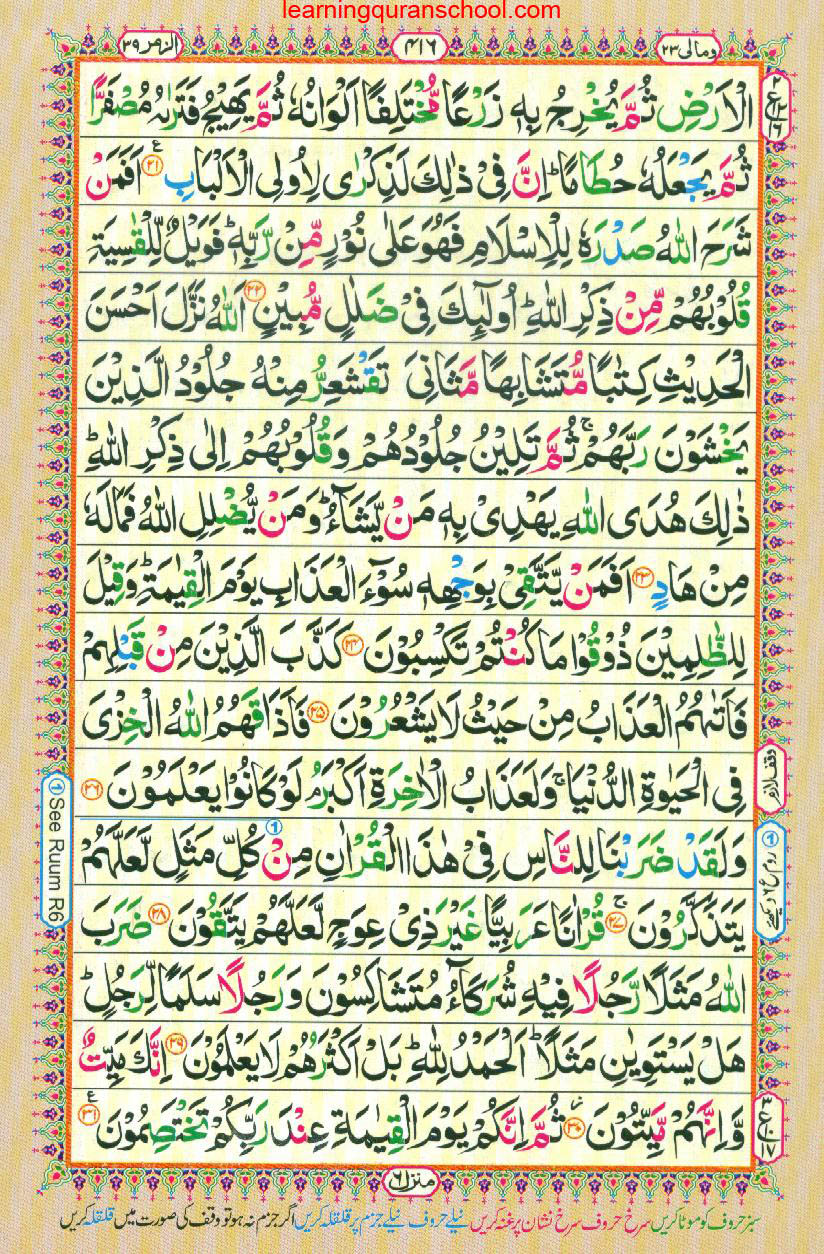 learningquranschool.com
ومالی ۲۳
۴۱۶
الزمر ۳۹
الْاَرْضِ ثُمَّ یُخْرِجُ بِهٖ زَرْعًا مُّخْتَلِفًا اَلْوَانُهٗ ثُمَّ یَهِیْجُ فَتَرٰىهُ مُصْفَرًّا
ثُمَّ یَجْعَلُهٗ حُطَامًا ؕ اِنَّ فِیْ ذٰلِكَ لَذِكْرٰی لِاُولِی الْاَلْبَابِ ۲۱ اَفَمَنْ
شَرَحَ اللّٰهُ صَدْرَهٗ لِلْاِسْلَامِ فَهُوَ عَلٰی نُوْرٍ مِّنْ رَّبِّهٖ ؕ فَوَیْلٌ لِّلْقٰسِیَةِ
قُلُوْبُهُمْ مِّنْ ذِكْرِ اللّٰهِ ؕ اُولٰٓىِٕكَ فِیْ ضَلٰلٍ مُّبِیْنٍ ۲۲ اَللّٰهُ نَزَّلَ اَحْسَنَ
الْحَدِیْثِ كِتٰبًا مُّتَشَابِهًا مَّثَانِیَ تَقْشَعِرُّ مِنْهُ جُلُوْدُ الَّذِیْنَ
یَخْشَوْنَ رَبَّهُمْ ۚ ثُمَّ تَلِیْنُ جُلُوْدُهُمْ وَقُلُوْبُهُمْ اِلٰی ذِكْرِ اللّٰهِ ؕ
ذٰلِكَ هُدَی اللّٰهِ یَهْدِیْ بِهٖ مَنْ یَّشَآءُ ؕ وَمَنْ یُّضْلِلِ اللّٰهُ فَمَا لَهٗ
مِنْ هَادٍ ۲۳ اَفَمَنْ یَّتَّقِیْ بِوَجْهِهٖ سُوْٓءَ الْعَذَابِ یَوْمَ الْقِیٰمَةِ ؕ وَقِیْلَ
لِلظّٰلِمِیْنَ ذُوْقُوْا مَا كُنْتُمْ تَكْسِبُوْنَ ۲۴ كَذَّبَ الَّذِیْنَ مِنْ قَبْلِهِمْ
فَاَتٰىهُمُ الْعَذَابُ مِنْ حَیْثُ لَا یَشْعُرُوْنَ ۲۵ فَاَذَاقَهُمُ اللّٰهُ الْخِزْیَ
فِی الْحَیٰوةِ الدُّنْیَا ۚ وَلَعَذَابُ الْاٰخِرَةِ اَكْبَرُ ۘ لَوْ كَانُوْا یَعْلَمُوْنَ ۲۶
وقف لازم
وَلَقَدْ ضَرَبْنَا لِلنَّاسِ فِیْ هٰذَا الْقُرْاٰنِ مِنْ كُلِّ مَثَلٍ لَّعَلَّهُمْ
① See Ruum R6
یَتَذَكَّرُوْنَ ۲۷ قُرْاٰنًا عَرَبِیًّا غَیْرَ ذِیْ عِوَجٍ لَّعَلَّهُمْ یَتَّقُوْنَ ۲۸ ضَرَبَ
اللّٰهُ مَثَلًا رَّجُلًا فِیْهِ شُرَكَآءُ مُتَشَاكِسُوْنَ وَرَجُلًا سَلَمًا لِّرَجُلٍ ؕ
هَلْ یَسْتَوِیٰنِ مَثَلًا ؕ اَلْحَمْدُ لِلّٰهِ ۚ بَلْ اَكْثَرُهُمْ لَا یَعْلَمُوْنَ ۲۹ اِنَّكَ مَیِّتٌ
وَّاِنَّهُمْ مَّیِّتُوْنَ ۳۰ ثُمَّ اِنَّكُمْ یَوْمَ الْقِیٰمَةِ عِنْدَ رَبِّكُمْ تَخْتَصِمُوْنَ ۳۱
منزل ۶
سبز حروف کو موٹا کریں سرخ حروف سرخ نشان پر غنہ کریں نیلے حروف نیلے جزم پر قلقلہ کریں اگر جزم نہ ہو تو وقف کی صورت میں قلقلہ کریں